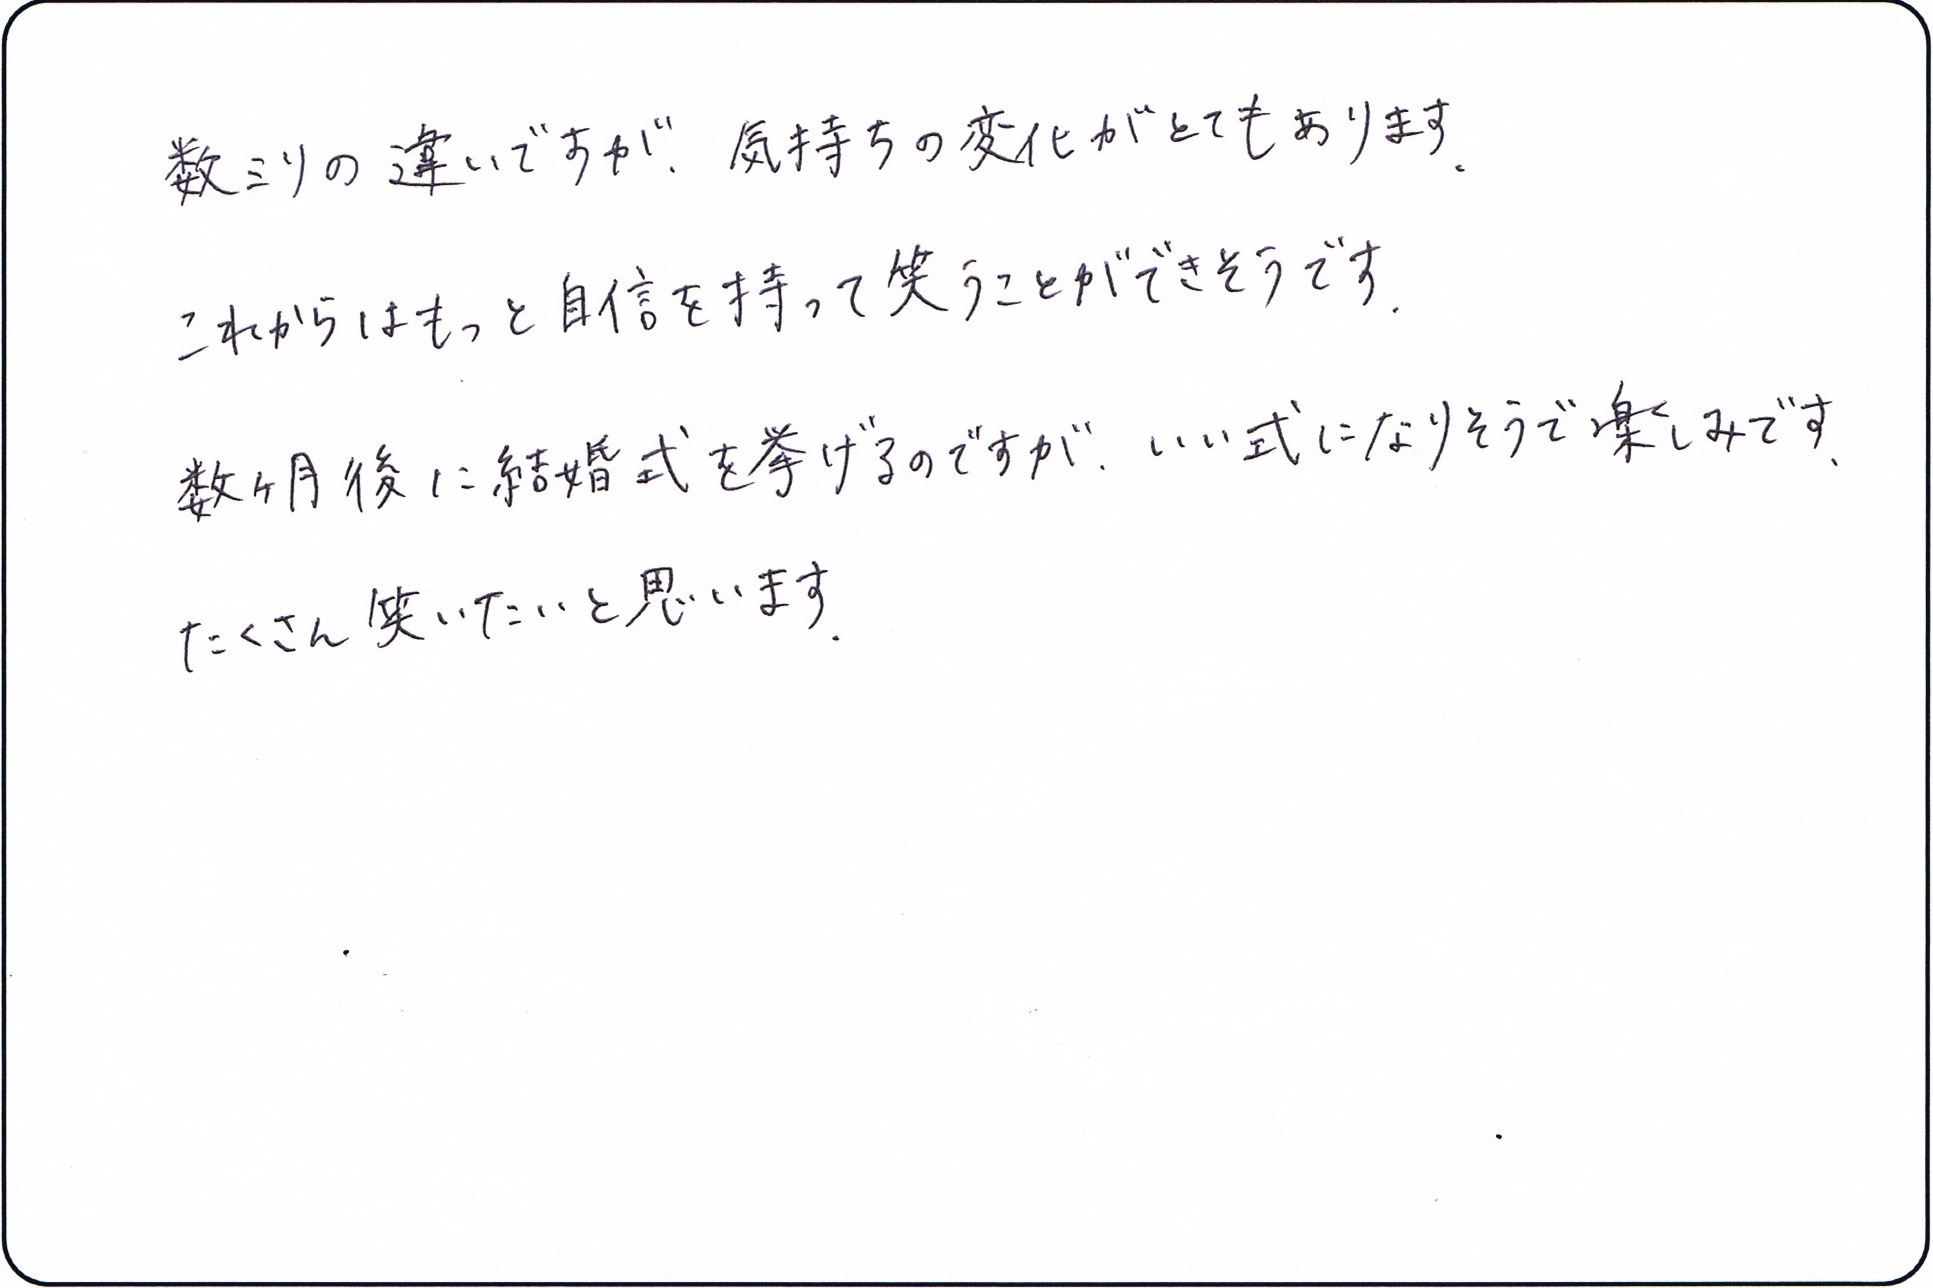 数ミリの違いですが、気持ちの変化がとてもあります。
これからはもっと自信を持って笑うことができそうです。
数ヶ月後に結婚式を挙げるのですが、いい式になりそうで楽しみです。
たくさん笑いたいと思います。